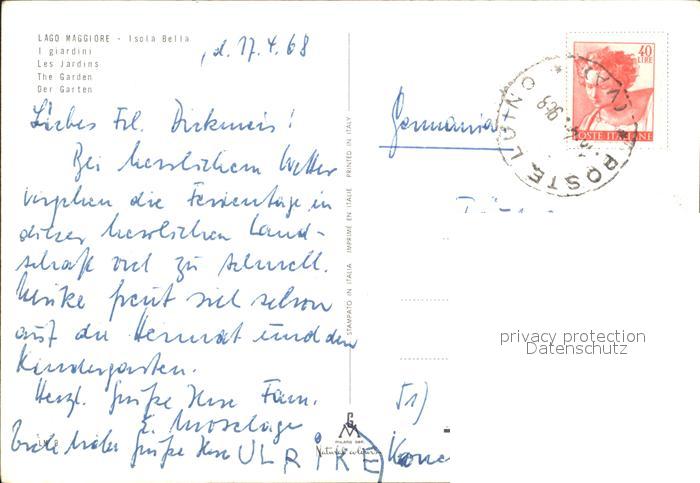 LAGO MAGGIORE - Isola Bella
I giardini
Les Jardins
The Garden
Der Garten
d. 17.4.68
Liebes Frl.
Bei herrlichem Wetter
vergehen die Ferientage in
dieser herrlichen Land-
schaft viel zu schnell.
Ulrike freut sich schon
auf die Heimat und den
Kindergarten.
Herzl. Grüße Ihre Fam.
E.
Viele liebe Grüße Ihre ULRIKE
STAMPATO IN ITALIA IMPRIMÉ EN ITALIE PRINTED IN ITALY
Natural colours
40
LIRE
POSTE ITALIANE
POSTE LUINO
Germania
privacy protection
Datenschutz